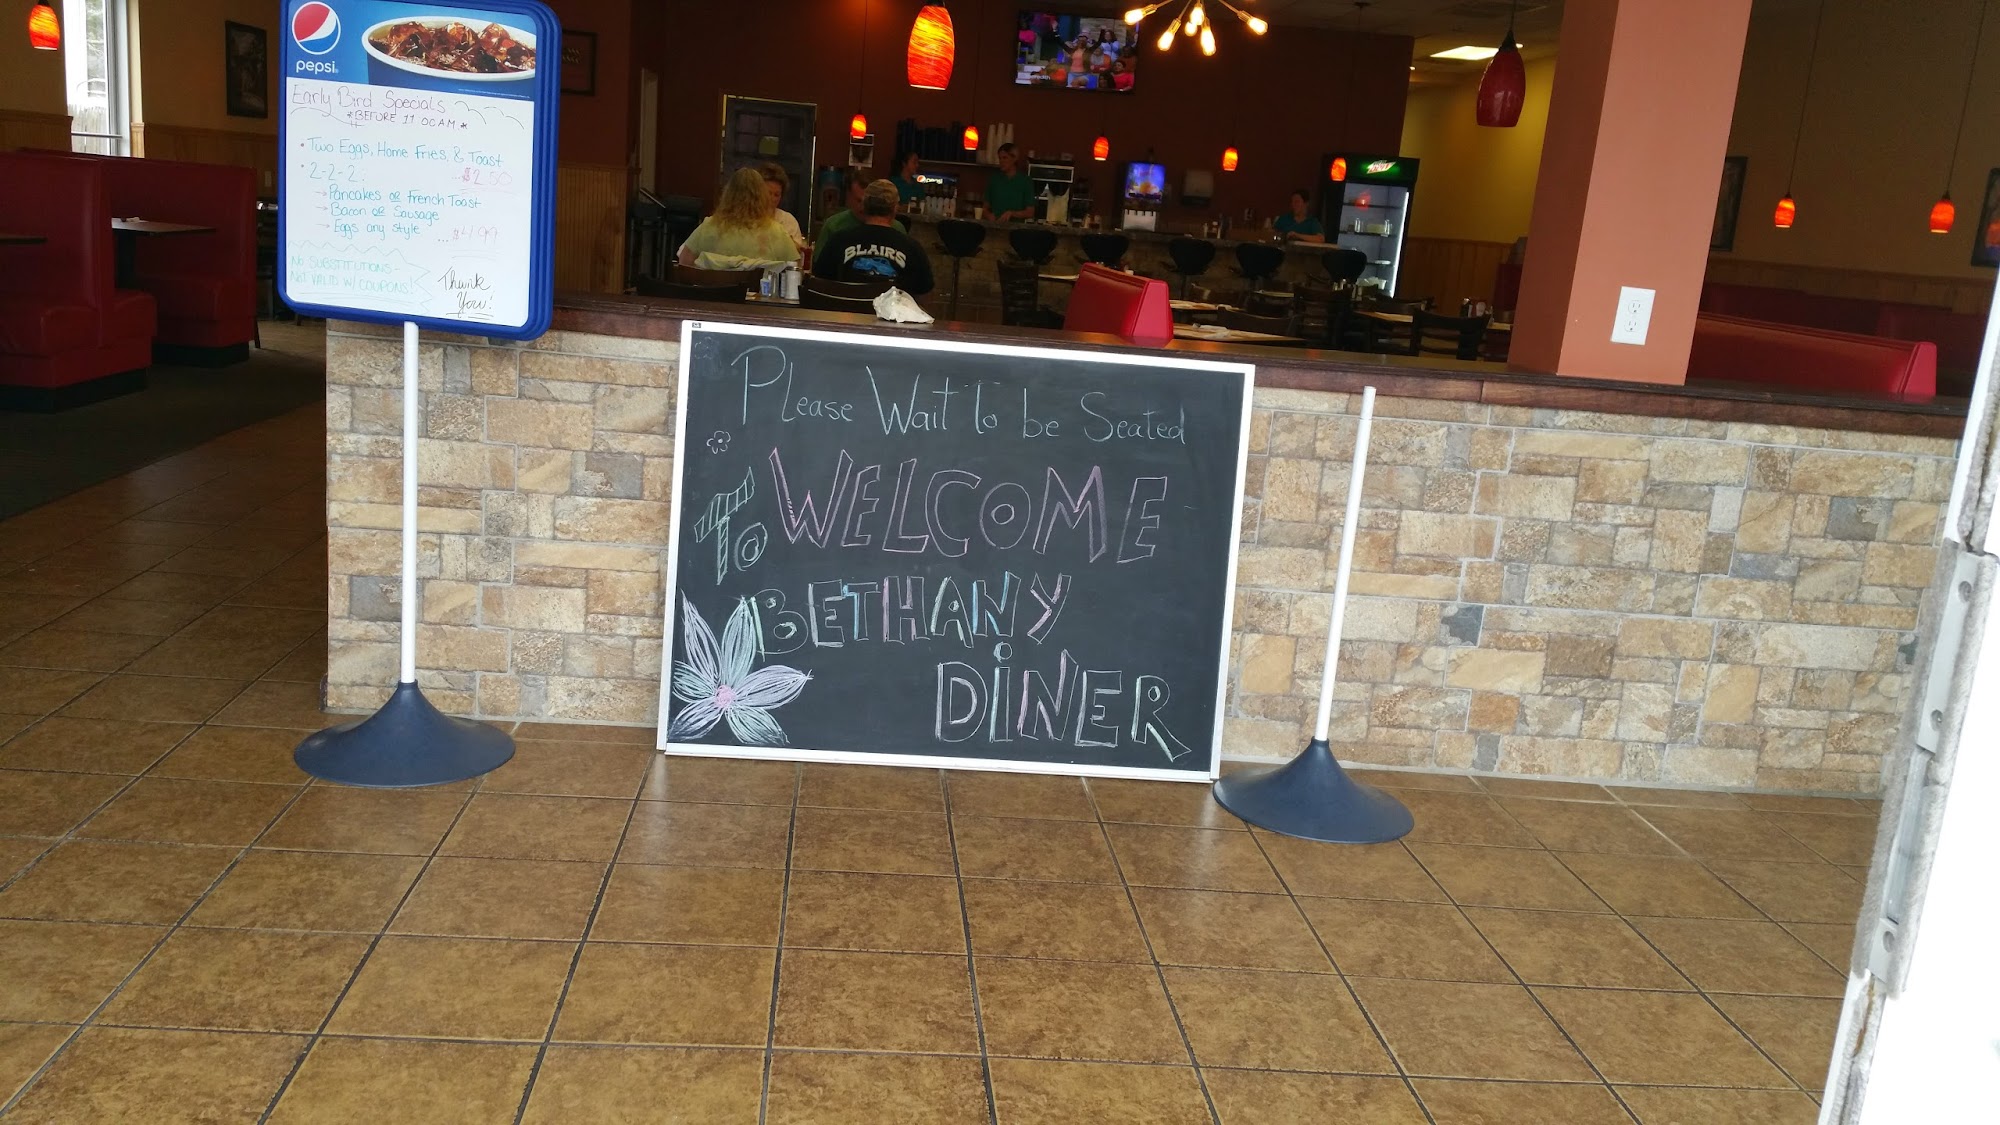 pepsi
Early Bird Specials
*BEFORE 11:00AM*
• Two Eggs, Home Fries, & Toast
...$2.50
• 2-2-2:
→ Pancakes or French Toast
→ Bacon or Sausage
→ Eggs any style
...$4.99
No SUBSTITUTIONS-
Not VALID W/ COUPONS!
Thank
You!
BLAIRS
pepsi
Please Wait To be Seated
WELCOME
To
BETHANY
DINER